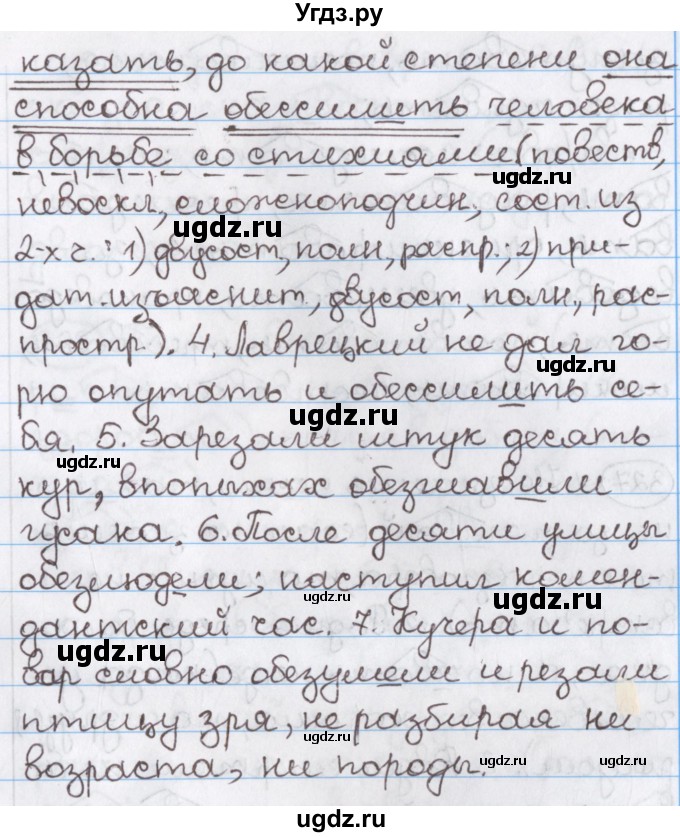 Угдз.ру
казать, до какой степени она
способна обессилить человека
в борьбе со стихиями (повеств,
ugdz.ru
невоскл, сложноподчин, сост. из
ugdz.ru
2-х ч.: 1) двусост, полн, распр.; 2) при-
дат. изъяснит, двусост, полн, рас-
простр.). 4. Лаврецкий не дал го-
ugdz.ru
рю опутать и обессилить се-
ugdz.ru
бя. 5. Зарезали штук десять
ugdz.ru
кур, впопыхах обезглавили
гусака. 6. После десяти улицы
обезлюдели; наступил комен-
ugdz.ru
ugdz.ru
дантский час. 7. Кучера и по-
ugdz.ru
вар словно обезумели и резали
птицу зря, не разбирая ни
ugdz.ru
возраста, ни породы.
ugdz.ru
ugdz.ru